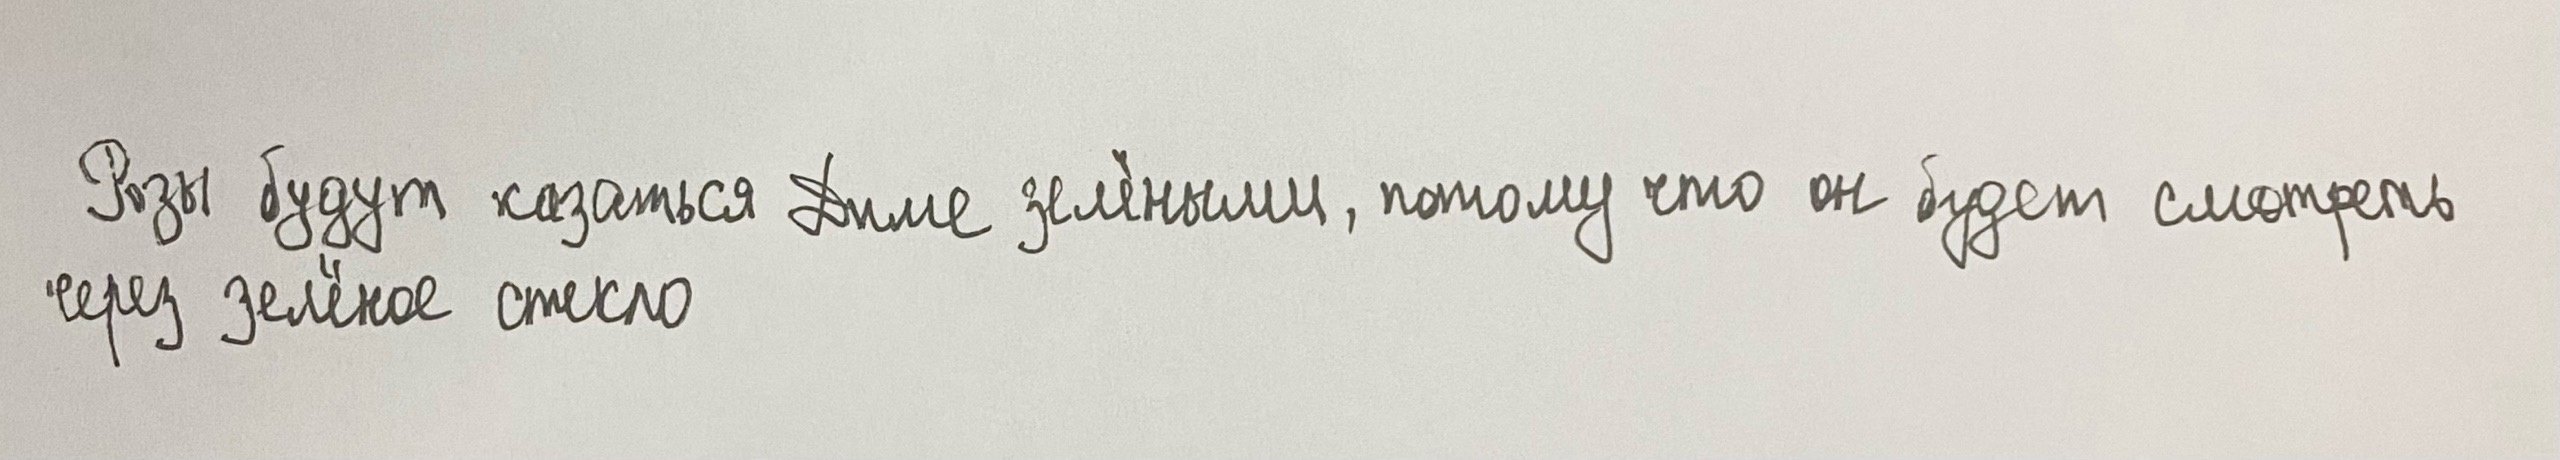 Розы будут казаться Диме зелёными, потому что он будет смотреть
через зелёное стекло